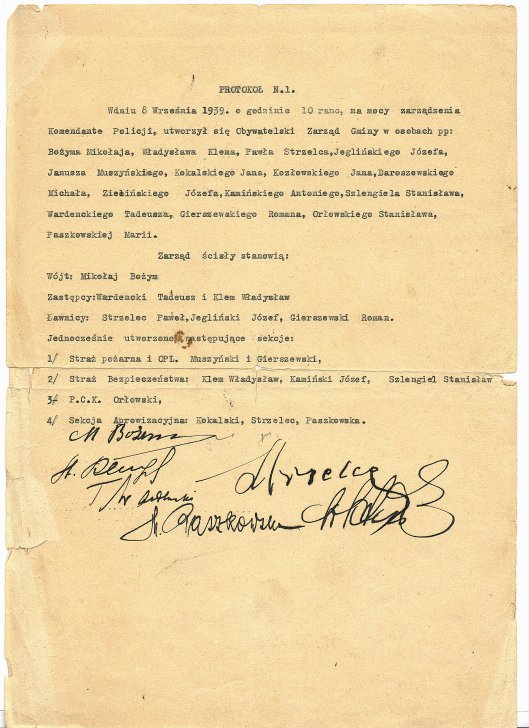 PROTOKOŁ N.1.
Wdniu 8 Września 1939. o godzinie 10 rano, na mocy zarządzenia
Komendante Policji, utworzył się Obywatelski Zarząd Gminy w osobach pp:
Bożyma Mikołaja, Władysława Klema, Pawła Strzelca,Jeglińskiego Józefa,
Janusza Muszyńskiego, Kokalskiego Jana, Kozłowskiego Jana,Daroszewskiego
Michała, Zielińskiego Józefa,Kamińskiego Antoniego,Szlengiela Stanisława,
Wardenckiego Tadeusza, Gierszewskiego Romana, Orłowskiego Stanisława,
Paszkowskiej Marii.
Zarząd ścisły stanowią:
Wójt: Mikołaj Bożym
Zastępcy:Wardencki Tadeusz i Klem Władysław
Ławnicy: Strzelec Paweł,Jegliński Józef, Gierszewski Roman.
Jednocześnie utworzono następujące sekcje:
1/ Straż pożarna i OPL. Muszyński i Gierszewski,
2/ Straż Bezpieczeństwa: Klem Władysław, Kamiński Józef, Szlengiel Stanisław
3/ P.C.K. Orłowski,
4/ Sekcja Aprowizacyjna: Kokalski, Strzelec, Paszkowska.
M Bożym
Strzelec
Paszkowska